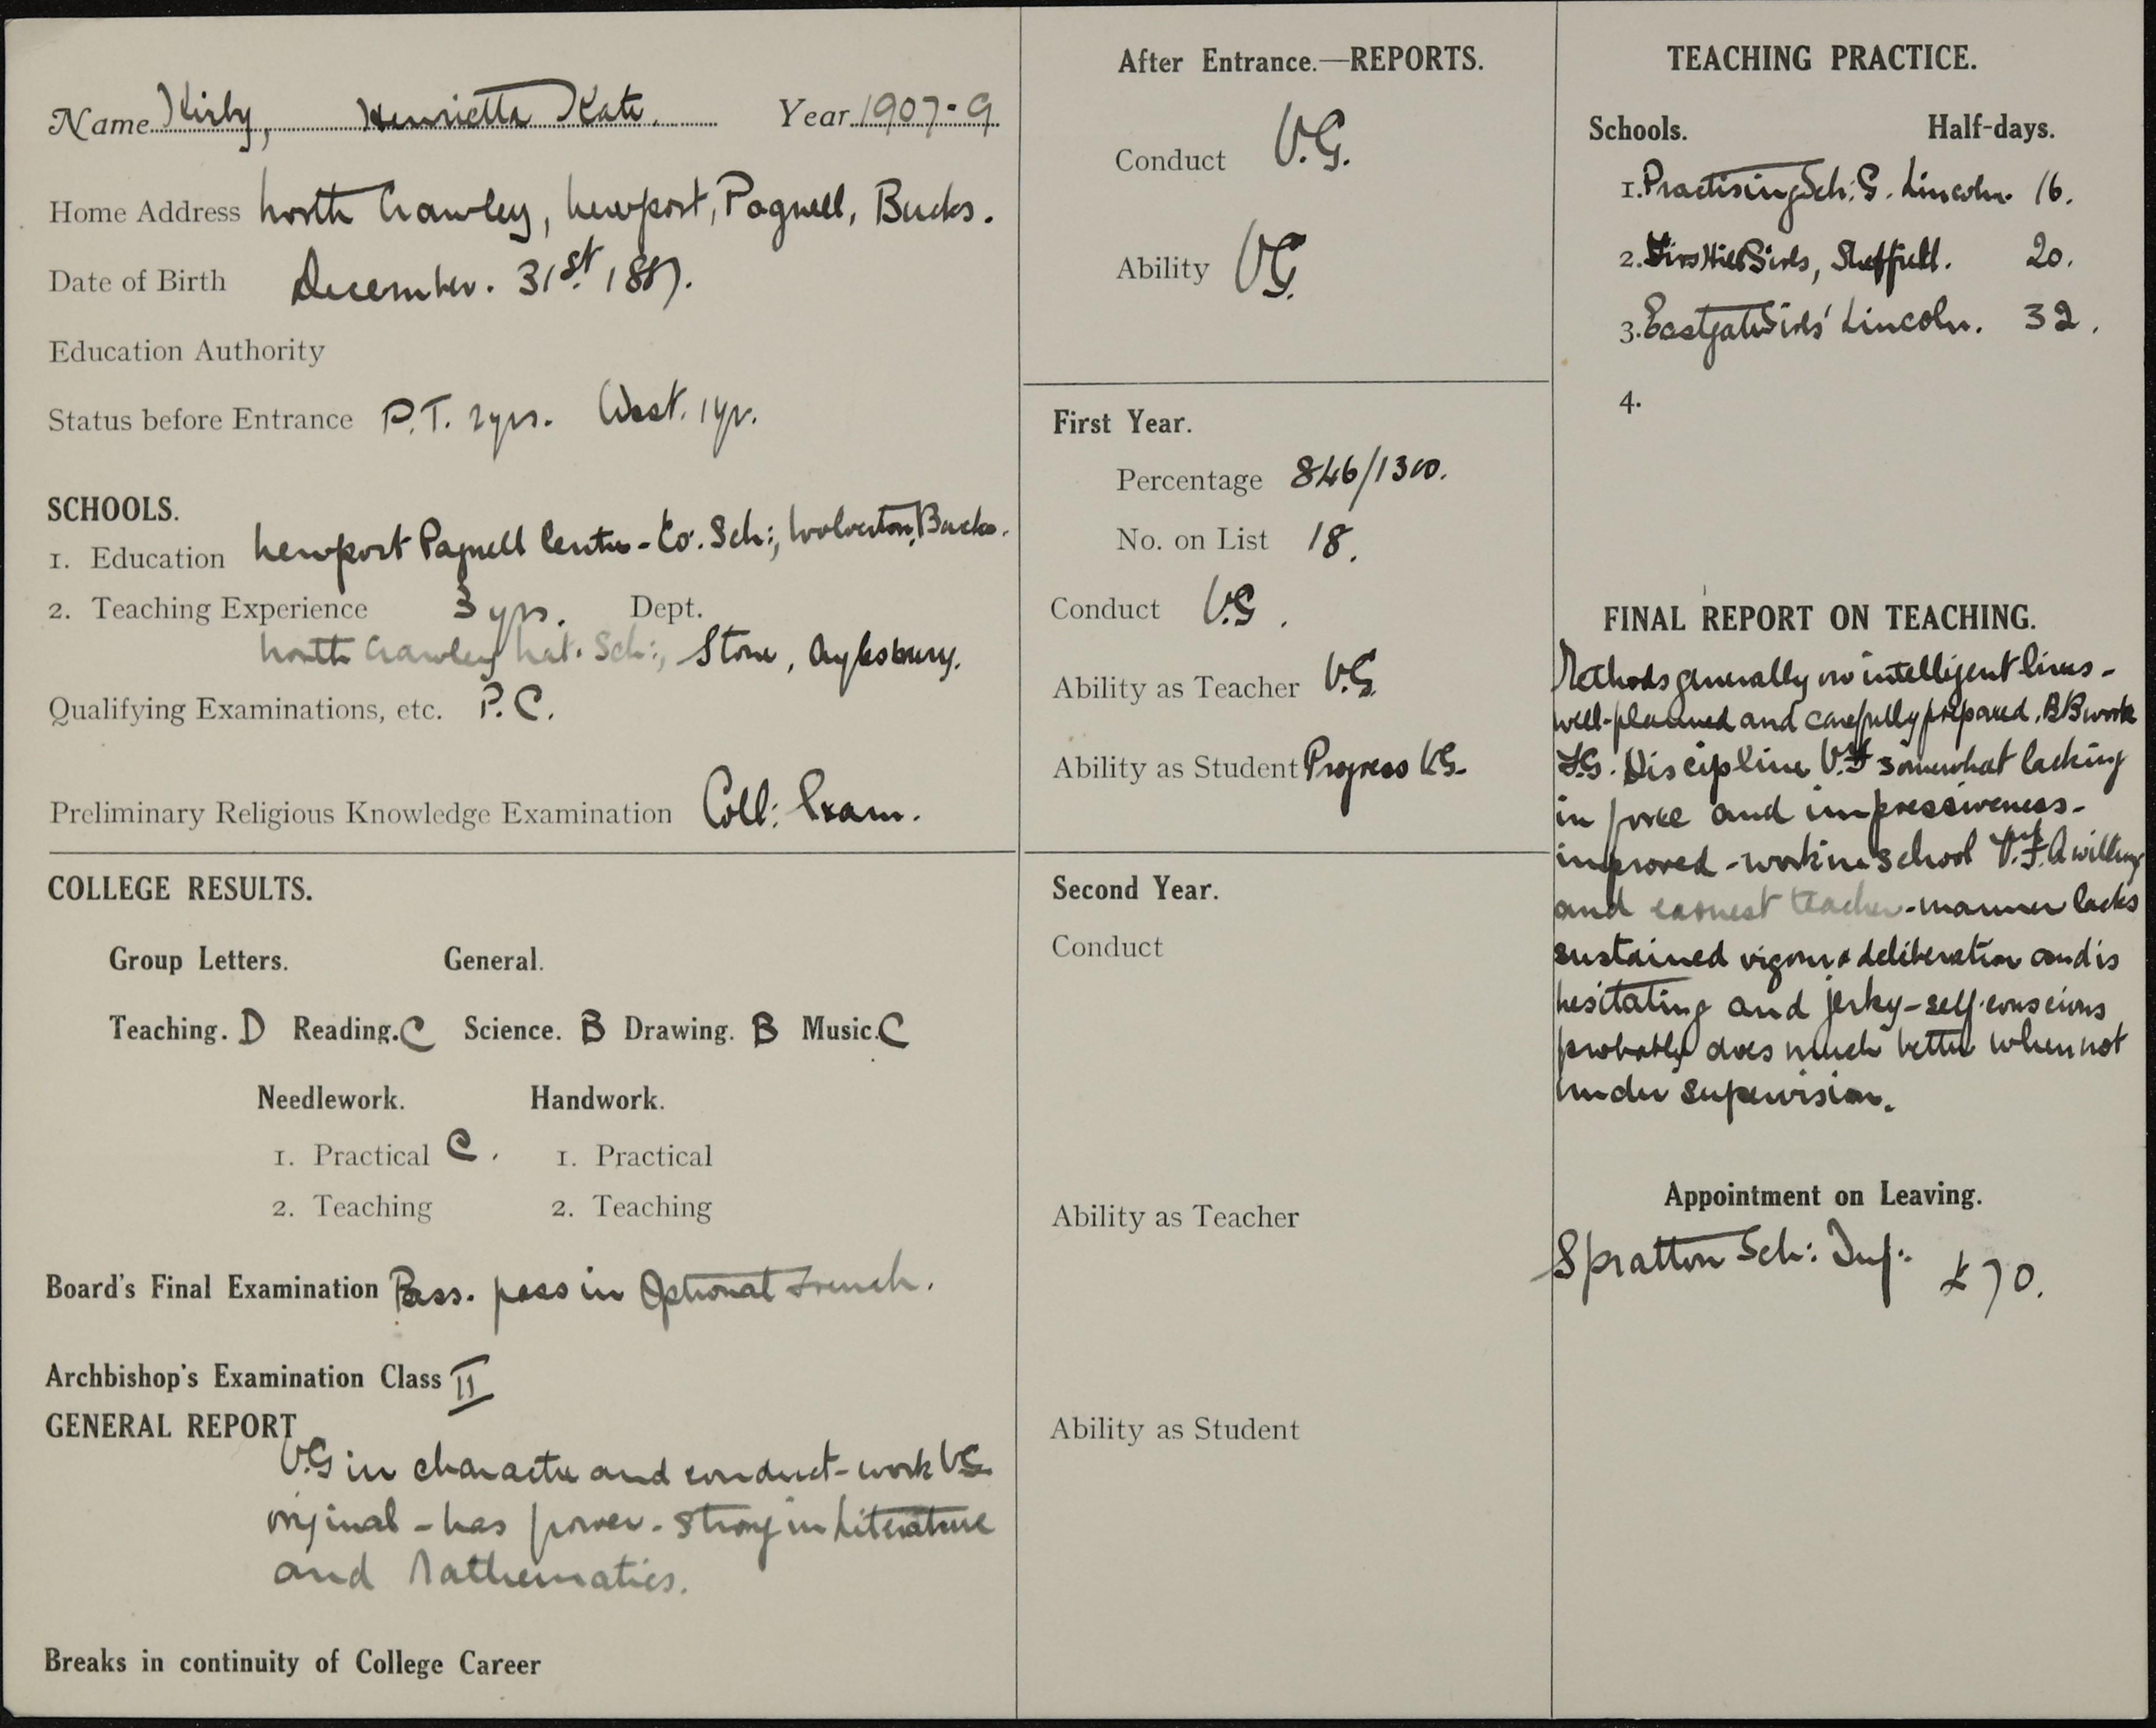 Name Kirby, Henrietta Kate. Year 1907-9
Home Address North Crawley, Newport, Pagnell, Bucks.
Date of Birth December. 31st 1887.
Education Authority
Status before Entrance P.T. 2yrs. Asst. 1yr.
SCHOOLS.
1. Education Newport Pagnell Centre - Co. Sch:, Wolverton, Bucks.
2. Teaching Experience 3 yrs. Dept.
North Crawley Nat. Sch:, Stone, Aylesbury.
Qualifying Examinations, etc. P.C.
Preliminary Religious Knowledge Examination Coll: Exam.
COLLEGE RESULTS.
Group Letters. General.
Teaching. D Reading. C Science. B Drawing. B Music. C
Needlework. Handwork.
1. Practical C. 1. Practical
2. Teaching 2. Teaching
Board's Final Examination Pass. pass in Optional French.
Archbishop's Examination Class II
GENERAL REPORT
V.G in character and conduct - work VG
original - has power - strong in Literature
and Mathematics.
Breaks in continuity of College Career
After Entrance.—REPORTS.
Conduct V.G.
Ability VG.
First Year.
Percentage 846/1300.
No. on List 18.
Conduct V.G.
Ability as Teacher V.G
Ability as Student Progress VG.
Second Year.
Conduct
Ability as Teacher
Ability as Student
TEACHING PRACTICE.
Schools. Half-days.
1. Practising Sch: G. Lincoln. 16.
2. Firs Hill Girls, Sheffield. 20.
3. Eastgate Girls' Lincoln. 32.
4.
FINAL REPORT ON TEACHING.
Methods generally on intelligent lines -
well-planned and carefully prepared. BB work
F.G. Discipline V.F somewhat lacking
in force and impressiveness -
improved - work in school V.F. A willing
and earnest teacher - manner lacks
sustained vigour & deliberation and is
hesitating and jerky - self-conscious
probably does much better when not
under supervision.
Appointment on Leaving.
Spratton Sch: Inf. £70.